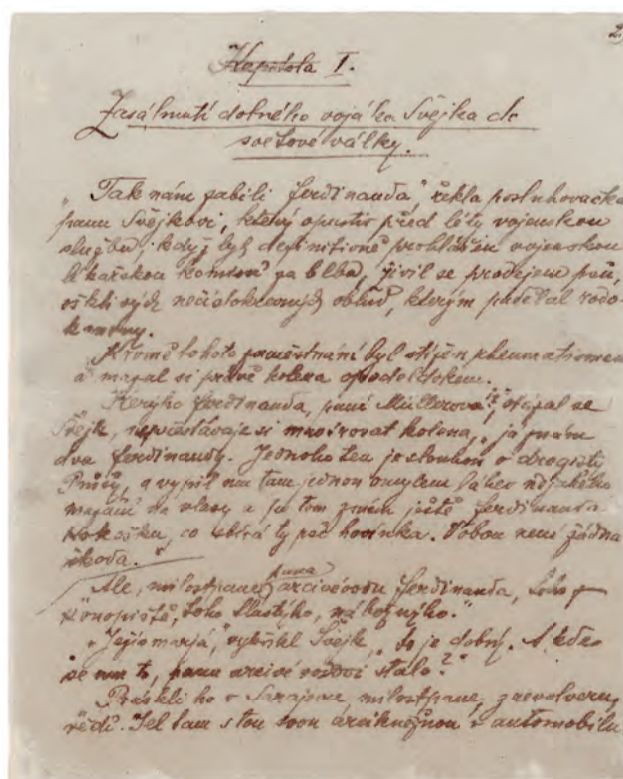 2
Kapitola I.
Zasáhnutí dobrého vojáka Švejka do
světové války.
"Tak nám zabili Ferdinanda", řekla posluhovačka
panu Švejkovi, který opustiv před léty vojenskou
službu, když byl definitivně prohlášen vojenskou
lékařskou komisí za blba, živil se prodejem psů,
ošklivých nečistokrevných oblud, kterým padělal rodo-
kmeny.
Kromě tohoto zaměstnání byl stižen rheumatismem
a mazal si právě kolena opodeldokem.
"Kerýho Ferdinanda, paní Müllerová?", otázal se
Švejk, nepřestávaje si masírovat kolena, "já znám
dva Ferdinandy. Jednoho, ten je sluhou o drogisty
Průšy, a vypil mu tam jednou omylem láhev nějakého
mazání na vlasy a pak znám ještě Ferdinanda
Kokošku, co sbírá ty psí hovínka. Vobou není žádná
škoda."
Ale, milostpane, pana arcivévodu Ferdinanda, toho z
Konopiště, toho tlustýho, nábožnýho."
"Ježíšmarjá", vykřikl Švejk, "to je dobrý. A kde
se mu to, panu arcivévodovi stalo?"
Práskli ho v Sarajevu, milostpane, z revolveru,
vědí. Jel tam s tou svou arcikněžnou v automobilu